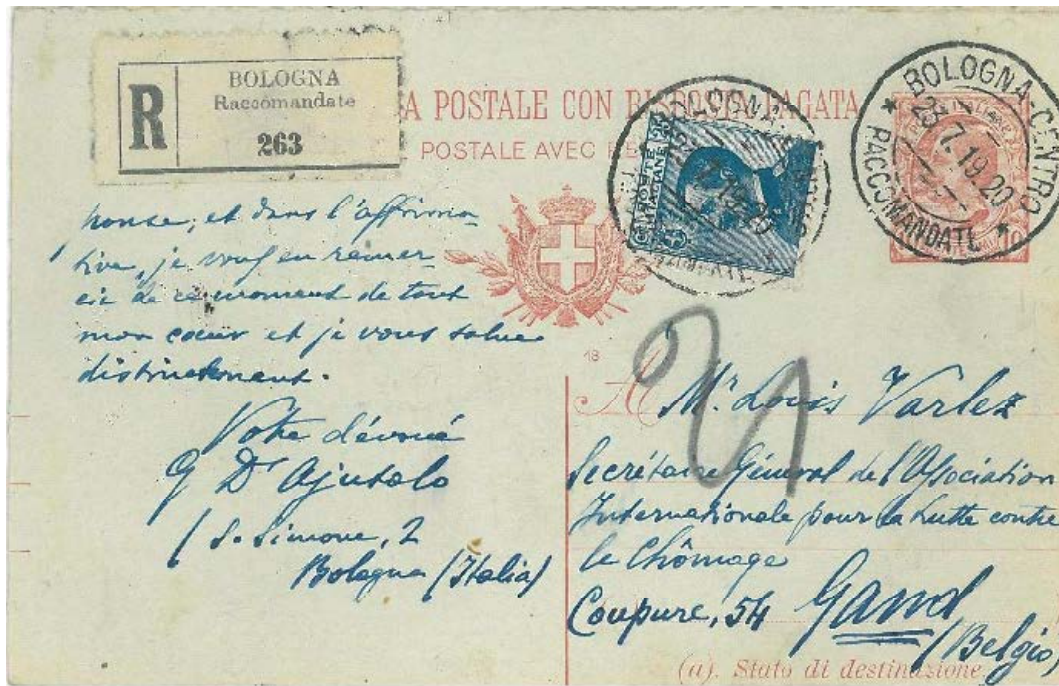 R
BOLOGNA
Raccomandate
263
A POSTALE CON RISPOSTA PAGATA
POSTALE AVEC
BOLOGNA CENTRO
23.7.19.20
* RACCOMANDATE *
ponse, et dans l'affirma
tive, je vous en remer
cie de ce moment de tout
mon cœur et je vous salue
distinctement.
Votre dévoué
G D'Ajutolo
S. Simone, 2
Bologna (Italia)
18
A Mr Louis Varlez
Secrétaire Général de l'Association
Internationale pour la lutte contre
le Chômage
Coupure, 54 Gand
(Belgio)
(a). Stato di destinazione.